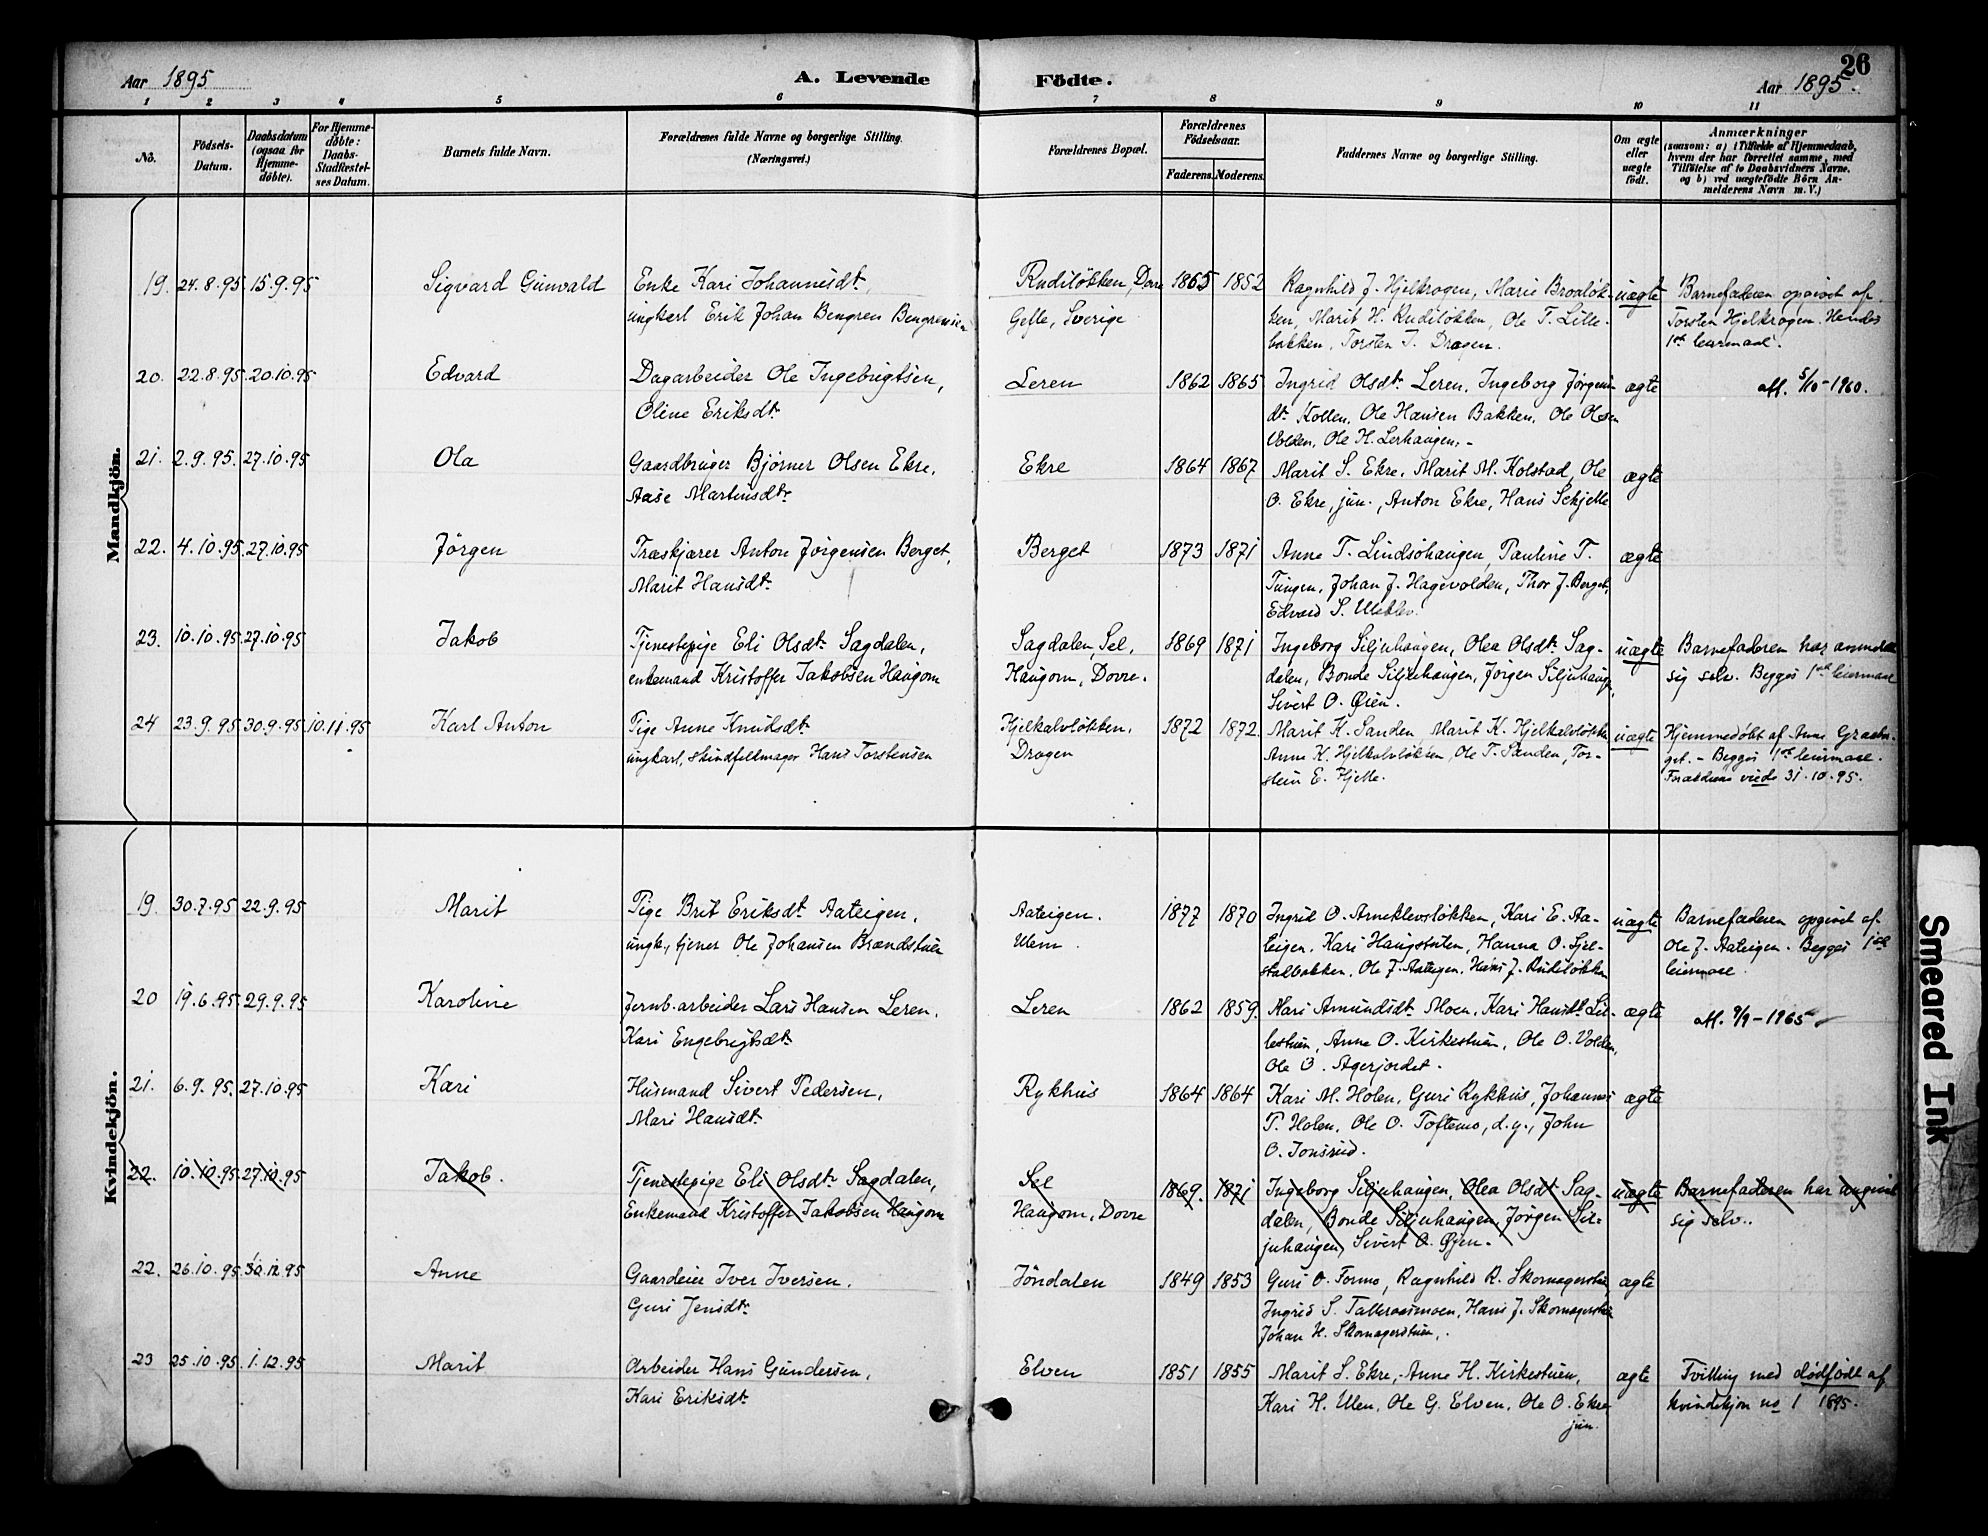 26
Aar 1895
A. Levende
Födte.
Aar 1895.
1 2 3 4 5 6 7 8 9 10 11
No.
Födsels-
Datum.
Daabsdatum
(ogsaa for
Hjemme-
döbte).
For Hjemme-
döbte:
Daabs-
Stadfæstel-
ses Datum.
Barnets fulde Navn.
Forældrenes fulde Navne og borgerlige Stilling.
(Næringsvei.)
Forældrenes Bopæl.
Forældrenes
Födselsaar.
Faderens. Moderens.
Faddernes Navne og borgerlige Stilling.
Om ægte
eller
uægte
födt.
Anmærkninger
(saasom: a) i Tilfælde af Hjemmedaab,
hvem der har forrettet samme, med
Tilföielse af to Daabsvidners Navne,
og b) ved uægtefödte Börn An-
melderens Navn m. V.)
Mandkjön.
19. 24.8.95 15.9.95 Sigvard Gunvald Enke Kari Johannesdt. Rudiløkken, Dovre 1865 1852 Ragnhild J. Hjelkrogen, Marie Broaløk- uægte Barnefaderen opgivet af
ungkarl Erik Johan Bengren Bengrensen Gefle, Sverige ken, Marit H. Rudiløkken, Ole T. Lille- Torsten Hjelkrogen. Hendes
bakken, Torsten T. Dragen. 1ste leiermaal.
20. 22.8.95 20.10.95 Edvard Dagarbeider Ole Ingebrigtsen, Leren 1862 1865 Ingrid Olsdt. Leren, Ingeborg Jørgens- ægte Att. 5/10-1960.
Oline Eriksdt. dt. Kollen, Ole Hansen Bakken, Ole Olsen
Volden, Ole H. Lerhaugen.-
21. 2.9.95. 27.10.95 Ola Gaardbruger Bjørner Olsen Ekre, Ekre 1864 1867 Marit S. Ekre, Marit M. Kolstad, Ole ægte
Aase Martinsdt. O. Ekre, jun., Anton Ekre, Hans Schjelle
22. 4.10.95. 27.10.95 Jørgen Træskjærer Anton Jørgensen Berget, Berget 1873 1871 Anne T. Lindsøhaugen, Pauline T. ægte
Marit Hansdt. Tungen, Johan J. Hagevolden, Thor J. Berget,
Edvard S.
23. 10.10.95. 27.10.95 Jakob Tjenestepige Eli Olsdt. Sagdalen, Sagdalen, Sel, 1869 1871 Ingeborg Siljuhaugen, Olea Olsdt. Sag- uægte Barnefaderen har anmeldt
enkemand Kristoffer Jakobsen Haugom Haugom, Dovre. dalen, Bonde Siljuhaugen, Jørgen Siljuhaugen, sig selv. Begges 1ste leiermaal
Sivert O. Øien.
24 23.9.95 30.9.95 10.11.95 Karl Anton Pige Anne Knudsdt. Hjelkalvløkken, 1872 1872 Marit K. Sanden, Marit K. Hjelkalvløkken uægte Hjemmedøbt af Anne
ungkarl, skindfeldmager Hans Torstensen Dragen Anne K. Hjelkalvløkken, Ole T. Sanden, Tor- get. - Begges 1ste leiermaal.
stein E. Hjelle. Forældrene viede 31.10.95.
Kvindekjön.
19. 30.7.95 22.9.95 Marit Pige Brit Eriksdt. Aateigen, Aateigen. 1877 1870 Ingrid O. Arneklevsløkken, Kari E. Aa- uægte Barnefaderen opgivet af
ungk., tjener Ole Johansen Brændstuen Ulen. teigen, Kari Haugstulen, Hanna O. Sjel- Ole J. Aateigen. Begges 1ste
stadbakken, Ole J. Aateigen, Hans J. Rudiløkken leiermaal.
20 19.6.95 29.9.95 Karoline Jernb.arbeider Lars Hansen Leren, Leren 1862 1859. Kari Amundsdt. Moen, Kari Hansdt. Lil- ægte Att. 9/9-1965
Kari Engebrigtsdt. lestuen, Anne O. Kirkestuen, Ole O. Volden,
Ole O. Agerjordet.
21. 6.9.95. 27.10.95 Kari Husmand Sivert Pedersen, Rykhus 1864 1864 Kari M. Holen, Guri Rykhus, Johannes ægte
Mari Hansdt. P. Holen, Ole O. Toftemo, d.y., John
O. Jonsrud.
22. 10.10.95. 27.10.95 Jakob. Tjenestepige Eli Olsdt. Sagdalen, Sel 1869. 1871 Ingeborg Siljuhaugen, Olea Olsdt. Sag- uægte Barnefaderen har angivet
Enkemand Kristoffer Jakobsen Haugom Haugom, Dovre dalen, Bonde Siljuhaugen, Jørgen Sil- sig selv.
juhaugen, Sivert O. Øjen.
22. 26.10.95. 12.95 Anne Gaardeier Iver Iversen, Jöndalen 1849 1853 Guri O. Formo, Ragnhild R. Skomagerstuen, ægte
Guri Jensdt. Ingrid S. Hans J. Skomagerstuen
Johan H. Skomagerstuen.
23 25.10.95. 1.12.95 Marit Arbeider Hans Gundersen, Elven 1851 1855 Marit S. Ekre, Anne H. Kirkestuen, ægte Tvilling med dødfødt af
Kari Eriksdt. Kari H. Ulen, Ole G. Elven, Ole O. Ekre kvindekjøn no 1 1895.
jun.
Smeared Ink